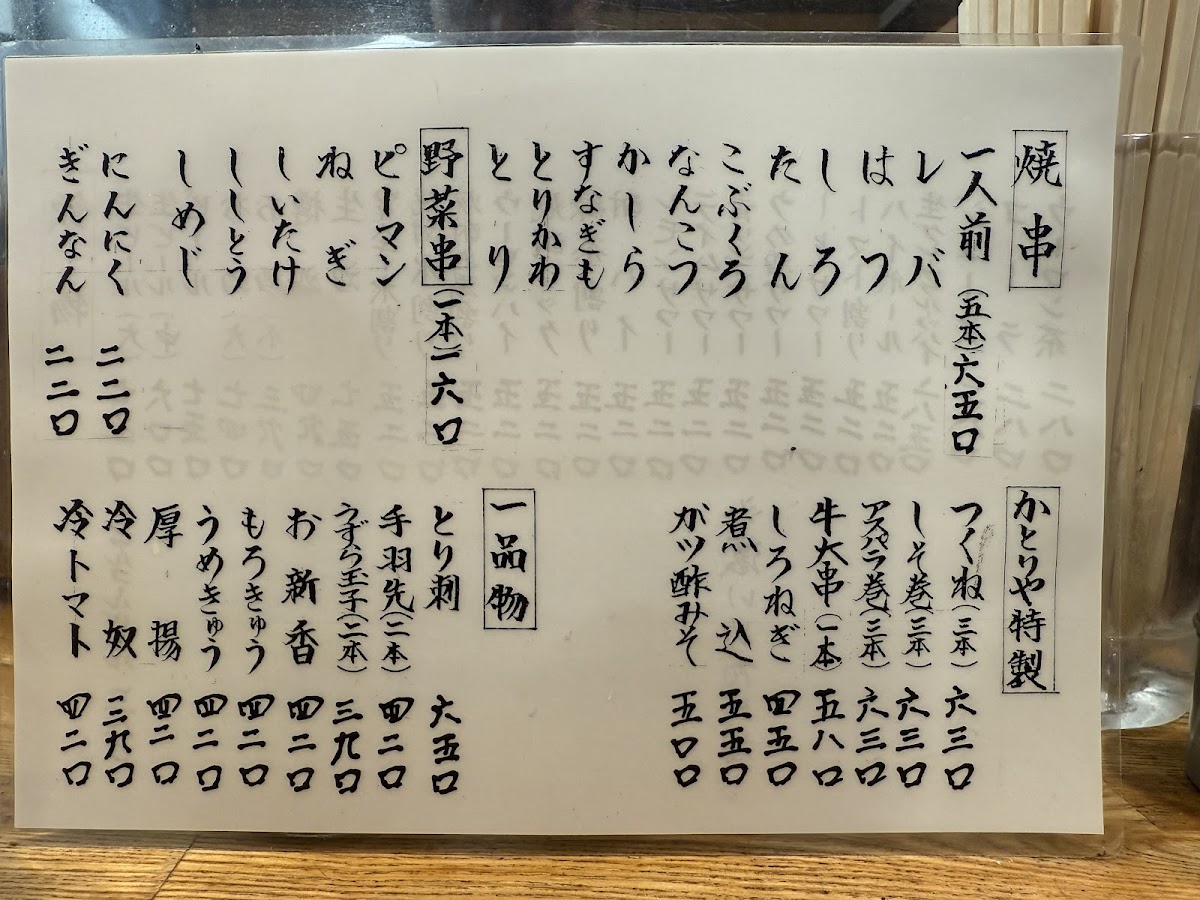 焼串
一人前(五本)六五〇
レバ
はつ
しろ
たん
こぶくろ
なんこつ
かしら
すなぎも
とりかわ
とり
野菜串(一本)一六〇
ピーマン
ねぎ
しいたけ
ししとう
しめじ
にんにく 二二〇
ぎんなん 二二〇
かとりや特製
つくね(三本)六三〇
しそ巻(三本)六三〇
アスパラ巻(三本)六三〇
牛大串(一本)五八〇
しろねぎ 四五〇
煮込 五五〇
ガツ酢みそ 五〇〇
一品物
とり刺 六五〇
手羽先(二本)四二〇
うずら玉子(二本)三九〇
お新香 四二〇
もろきゅう 四二〇
うめきゅう 四二〇
厚揚 四二〇
冷奴 三九〇
冷トマト 四二〇